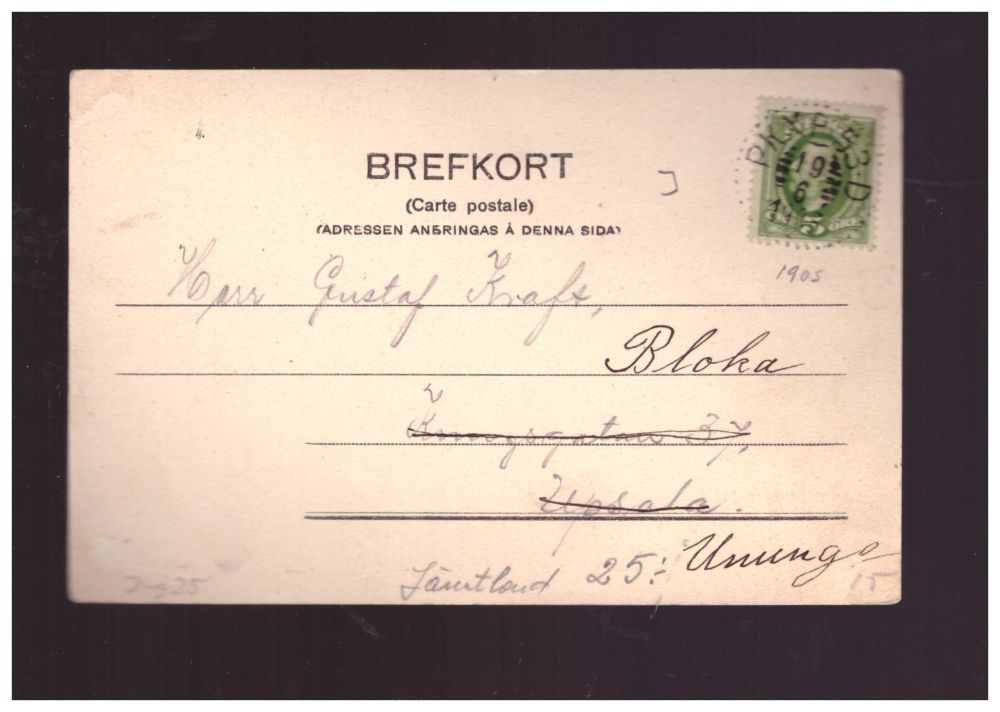 BREFKORT
(Carte postale)
(ADRESSEN ANBRINGAS Å DENNA SIDA)
PKXP 53 D
19
6
5 ÖRE
1905
Herr Gustaf Kraft,
Bloka
Kungsgatan 37,
Upsala.
Ununge
Jämtland 25:-
15